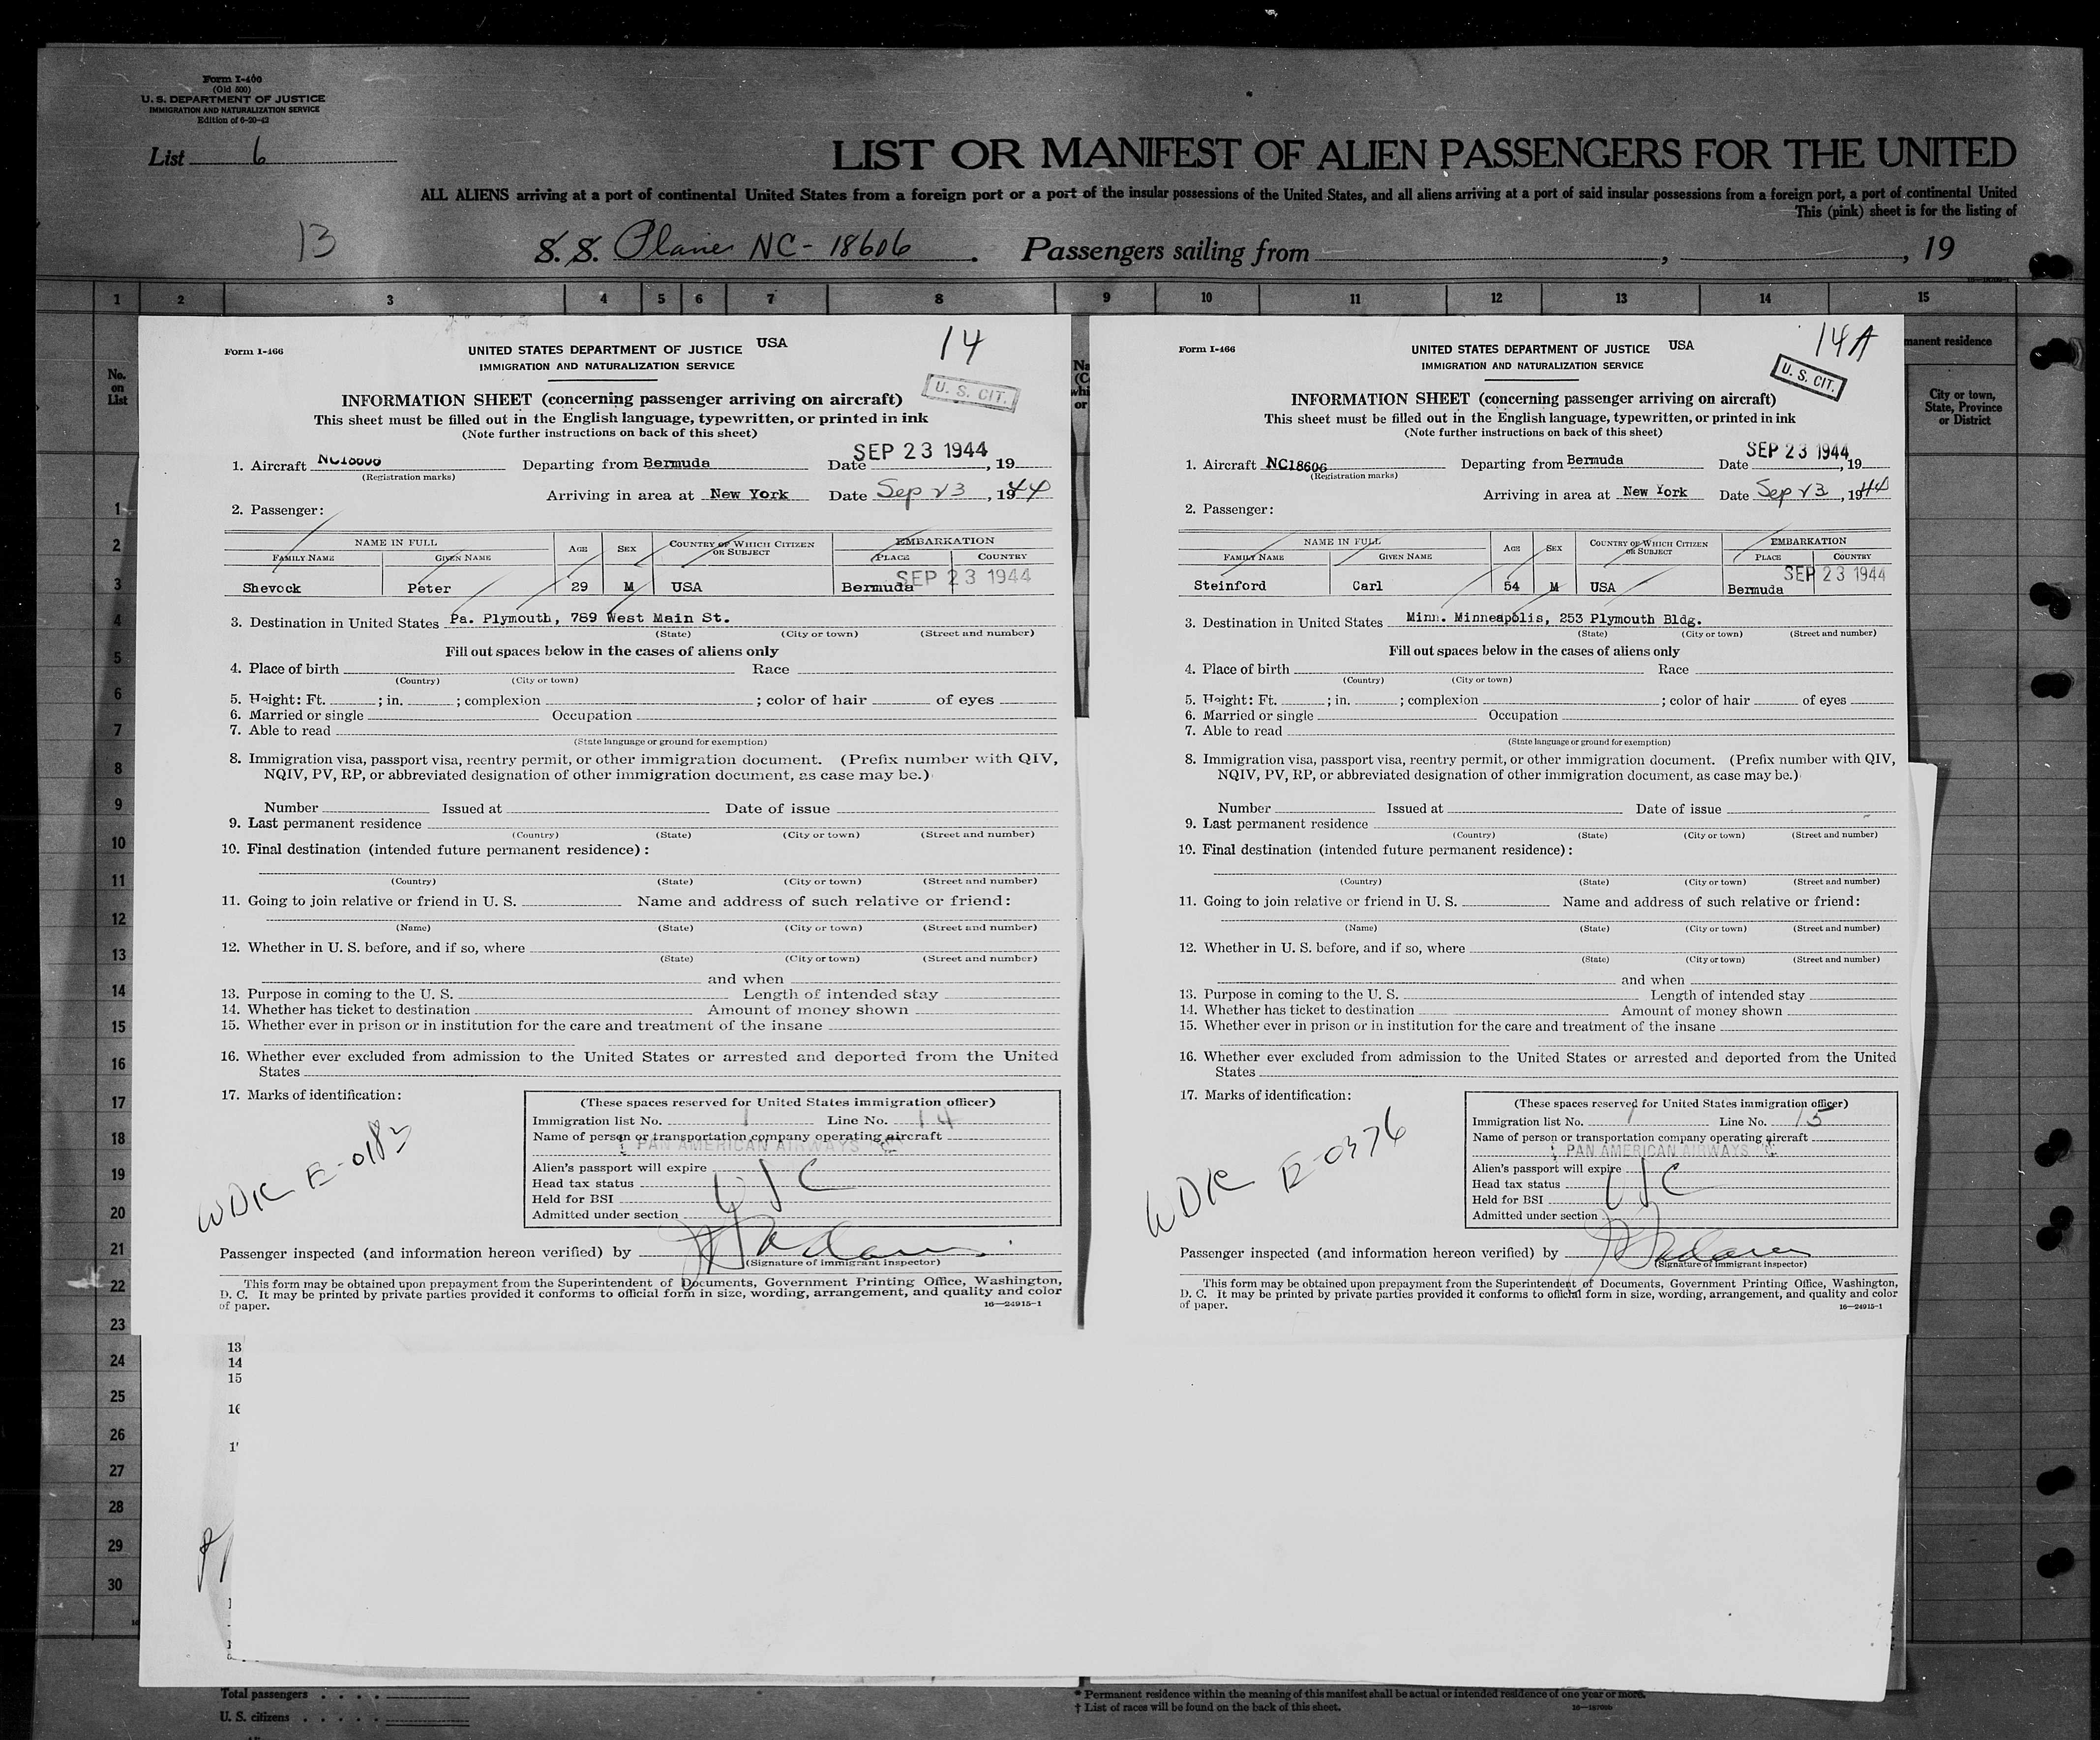 Form I-460
(Old 500)
U. S. DEPARTMENT OF JUSTICE
IMMIGRATION AND NATURALIZATION SERVICE
Edition of 6-20-42
List 6
LIST OR MANIFEST OF ALIEN PASSENGERS FOR THE UNITED
ALL ALIENS arriving at a port of continental United States from a foreign port or a port of the insular possessions of the United States, and all aliens arriving at a port of said insular possessions from a foreign port, a port of continental United
This (pink) sheet is for the listing of
13
S. S. Plane NC-18606. Passengers sailing from , , 19
1 2 3 4 5 6 7 8 9 10 11 12 13 14 15
No.
on
List
1
2
3
4
5
6
7
8
9
10
11
12
13
14
15
16
17
18
19
20
21
22
23
24
25
26
27
28
29
30
Form I-466
UNITED STATES DEPARTMENT OF JUSTICE USA
14
IMMIGRATION AND NATURALIZATION SERVICE
U. S. CIT.
INFORMATION SHEET (concerning passenger arriving on aircraft)
This sheet must be filled out in the English language, typewritten, or printed in ink
(Note further instructions on back of this sheet)
1. Aircraft NC18606 Departing from Bermuda Date SEP 23 1944, 19
(Registration marks)
Arriving in area at New York Date Sep 23, 1944
2. Passenger:
NAME IN FULL AGE SEX COUNTRY OF WHICH CITIZEN OR SUBJECT EMBARKATION
FAMILY NAME GIVEN NAME PLACE COUNTRY
Shevock Peter 29 M USA Bermuda SEP 23 1944
3. Destination in United States Pa. Plymouth, 789 West Main St.
(State) (City or town) (Street and number)
Fill out spaces below in the cases of aliens only
4. Place of birth Race
(Country) (City or town)
5. Height: Ft. ; in. ; complexion ; color of hair of eyes
6. Married or single Occupation
7. Able to read
(State language or ground for exemption)
8. Immigration visa, passport visa, reentry permit, or other immigration document. (Prefix number with QIV,
NQIV, PV, RP, or abbreviated designation of other immigration document, as case may be.)
Number Issued at Date of issue
9. Last permanent residence
(Country) (State) (City or town) (Street and number)
10. Final destination (intended future permanent residence):
(Country) (State) (City or town) (Street and number)
11. Going to join relative or friend in U. S. Name and address of such relative or friend:
(Name) (State) (City or town) (Street and number)
12. Whether in U. S. before, and if so, where
(State) (City or town) (Street and number)
and when
13. Purpose in coming to the U. S. Length of intended stay
14. Whether has ticket to destination Amount of money shown
15. Whether ever in prison or in institution for the care and treatment of the insane
16. Whether ever excluded from admission to the United States or arrested and deported from the United
States
17. Marks of identification:
WDR E-0183
(These spaces reserved for United States immigration officer)
Immigration list No. 1 Line No. 14
Name of person or transportation company operating aircraft
PAN AMERICAN AIRWAYS
Alien's passport will expire
Head tax status USC
Held for BSI
Admitted under section
Passenger inspected (and information hereon verified) by
(Signature of immigrant inspector)
This form may be obtained upon prepayment from the Superintendent of Documents, Government Printing Office, Washington,
D. C. It may be printed by private parties provided it conforms to official form in size, wording, arrangement, and quality and color
of paper. 16—24915-1
13
14
15
Form I-466
UNITED STATES DEPARTMENT OF JUSTICE USA
14A
IMMIGRATION AND NATURALIZATION SERVICE
U. S. CIT.
INFORMATION SHEET (concerning passenger arriving on aircraft)
This sheet must be filled out in the English language, typewritten, or printed in ink
(Note further instructions on back of this sheet)
1. Aircraft NC18606 Departing from Bermuda Date SEP 23 1944, 19
(Registration marks)
Arriving in area at New York Date Sep 23, 1944
2. Passenger:
NAME IN FULL AGE SEX COUNTRY OF WHICH CITIZEN OR SUBJECT EMBARKATION
FAMILY NAME GIVEN NAME PLACE COUNTRY
Steinford Carl 54 M USA Bermuda SEP 23 1944
3. Destination in United States Minn. Minneapolis, 253 Plymouth Bldg.
(State) (City or town) (Street and number)
Fill out spaces below in the cases of aliens only
4. Place of birth Race
(Country) (City or town)
5. Height: Ft. ; in. ; complexion ; color of hair of eyes
6. Married or single Occupation
7. Able to read
(State language or ground for exemption)
8. Immigration visa, passport visa, reentry permit, or other immigration document. (Prefix number with QIV,
NQIV, PV, RP, or abbreviated designation of other immigration document, as case may be.)
Number Issued at Date of issue
9. Last permanent residence
(Country) (State) (City or town) (Street and number)
10. Final destination (intended future permanent residence):
(Country) (State) (City or town) (Street and number)
11. Going to join relative or friend in U. S. Name and address of such relative or friend:
(Name) (State) (City or town) (Street and number)
12. Whether in U. S. before, and if so, where
(State) (City or town) (Street and number)
and when
13. Purpose in coming to the U. S. Length of intended stay
14. Whether has ticket to destination Amount of money shown
15. Whether ever in prison or in institution for the care and treatment of the insane
16. Whether ever excluded from admission to the United States or arrested and deported from the United
States
17. Marks of identification:
WDR E-0376
(These spaces reserved for United States immigration officer)
Immigration list No. 1 Line No. 15
Name of person or transportation company operating aircraft
PAN AMERICAN AIRWAYS
Alien's passport will expire
Head tax status USC
Held for BSI
Admitted under section
Passenger inspected (and information hereon verified) by
(Signature of immigrant inspector)
This form may be obtained upon prepayment from the Superintendent of Documents, Government Printing Office, Washington,
D. C. It may be printed by private parties provided it conforms to official form in size, wording, arrangement, and quality and color
of paper. 16—24915-1
manent residence
City or town,
State, Province
or District
Total passengers . . . .
U. S. citizens . . . . .
* Permanent residence within the meaning of this manifest shall be actual or intended residence of one year or more.
† List of races will be found on the back of this sheet.